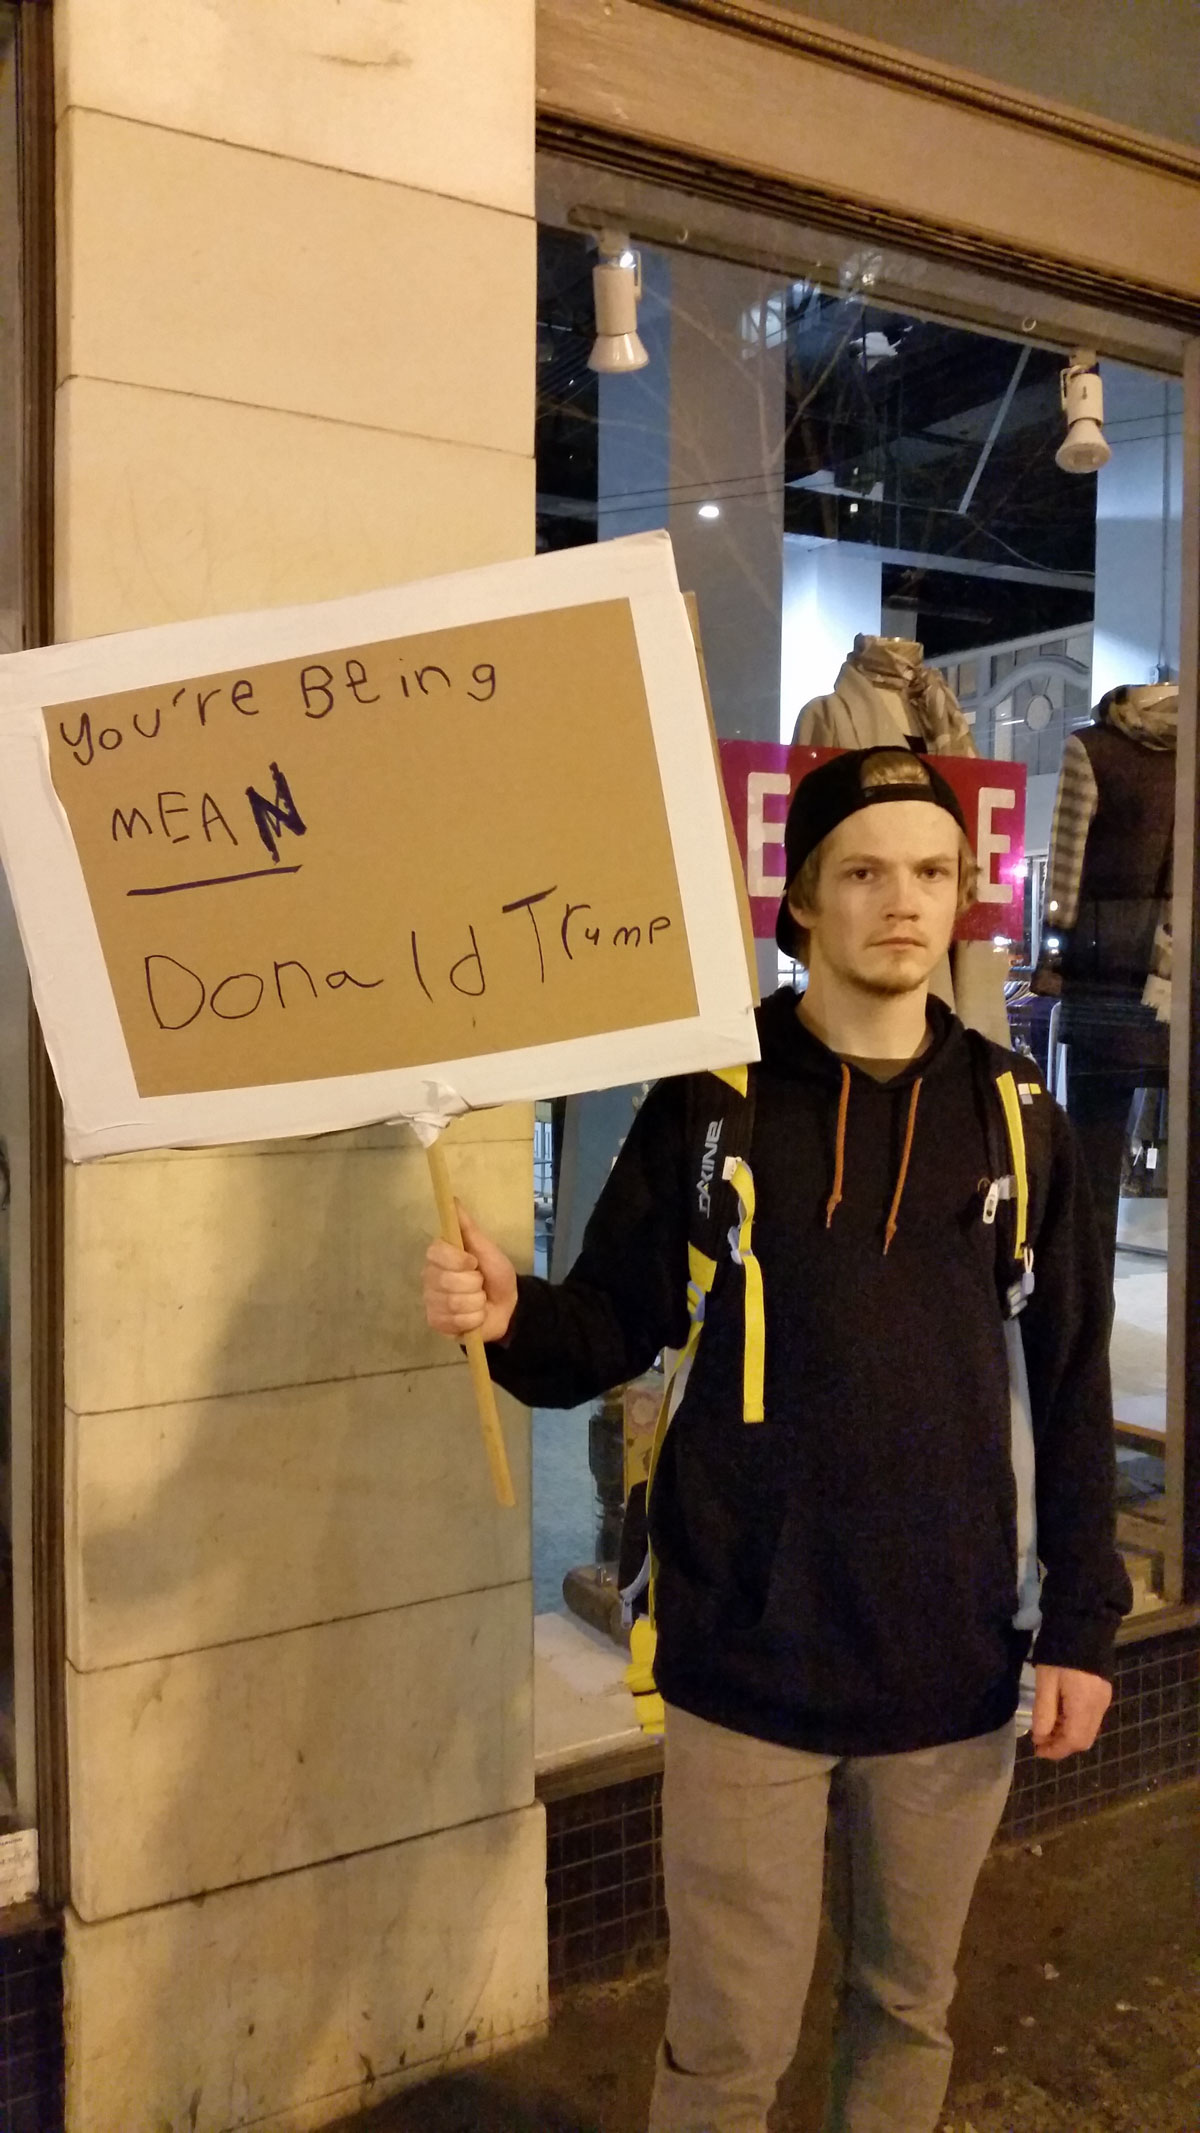 you're Being
MEAN
Donald Trump
DAKINE
E E